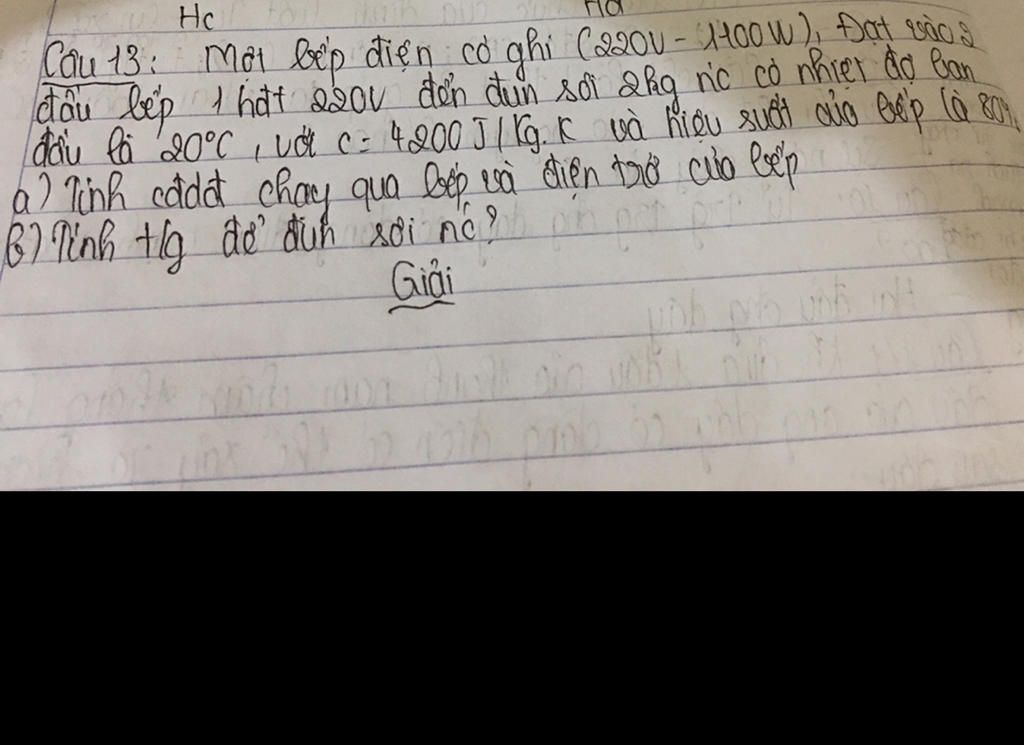 Hc
Câu 13: Một bếp điện có ghi (220V - 1100W), Đặt vào 2
đầu bếp 1 hđt 220V đến đun sôi 2kg nc có nhiệt độ ban
đầu là 20°C, với c = 4200J/kg.K và hiệu suất của bếp là 80%
a) Tính cđdđ chạy qua bếp và điện trở của bếp
b) Tính tg để đun sôi nc?
Giải